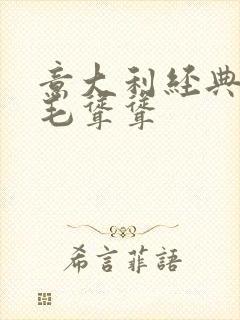 意大利經典
毛聳聳
希言菲語